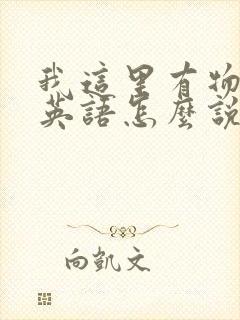 我這里有物
英語怎麼說
向凱文